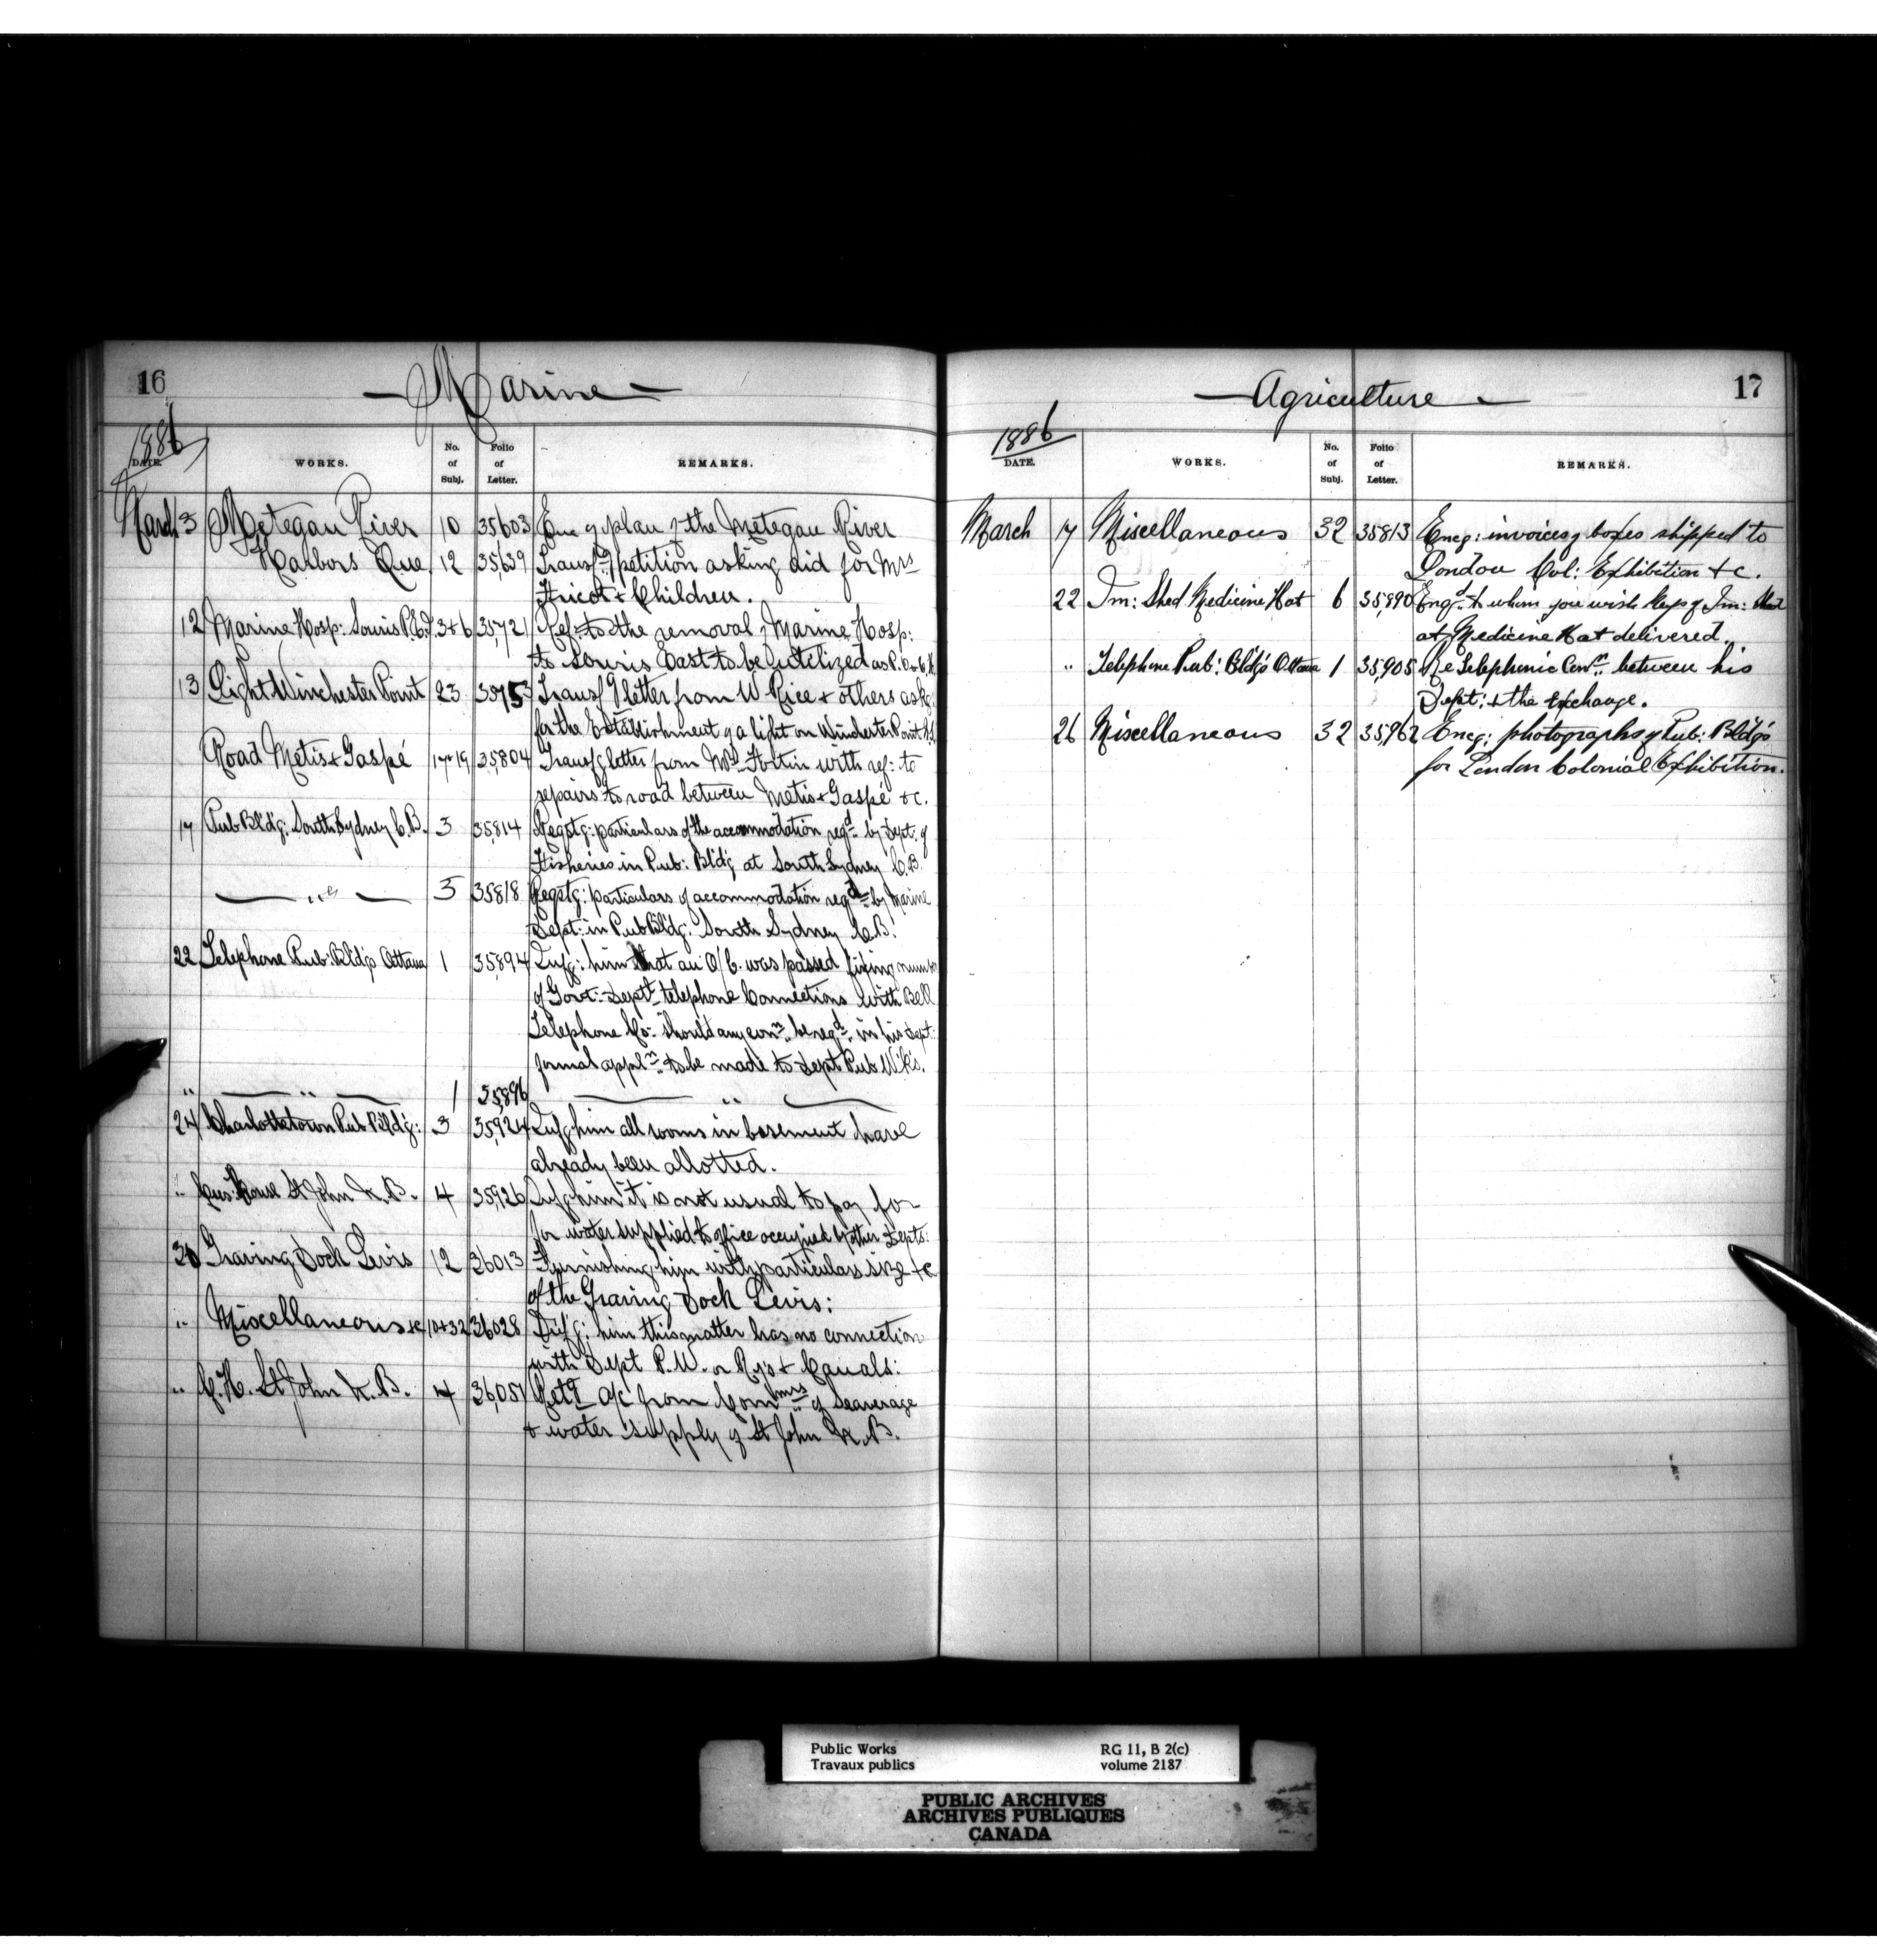 16
Marine
1886
DATE. WORKS. No. of Subj. Folio of Letter. REMARKS.
March 3 Metegan River 10 35603 Enc g plan of the Metegan River
Harbors Que 12 35,639 Transf g petition asking aid for Mrs
Fricot + Children.
12 Marine Hosp: Souris P.E.I. 3+6 35721 Ref: to the removal of Marine Hosp:
to Souris East to be utilized as P.O. + C.H.
13 Light Winchester Point 23 35753 Transf g letter from W Rice + others askg
for the Establishment of a light on Winchester Point N.S.
Road Metis + Gaspé 17+19 35,804 Transf g letter from Fortin with ref: to
repairs to road between Metis + Gaspé &c.
17 Pub Bldg: South Sydney C.B. 3 35,814 Reqstg: particulars of the accommodation reqd by Dept. of
Fisheries in Pub: Bldg at South Sydney C.B.
— " — 3 35818 Reqstg: particulars of accommodation reqd by Marine
Dept: in Pub Bldg: South Sydney C.B.
22 Telephone Pub: Bldgs Ottawa 1 35,894 Infg: him that an O/C. was passed fixing number
of Govt: Dept telephone Connections with Bell
Telephone Co: Should any conn be reqd in his Dept:
formal appln to be made to Dept Pub Wks.
" — " — 1 35,896 — " —
24 Charlottetown Pub Bldg: 3 35,924 Infg him all rooms in basement have
already been allotted.
" Cus: House St John N.B. 4 35,926 Infg him it is not usual to pay for
for water supplied to office occupied by other Depts:
30 Graving Dock Levis 12 36013 Furnishing him with particulars size &c
of the Graving Dock Levis:
" Miscellaneous &c 10+32 36028 Infg: him this matter has no connection
with Dept P.W. or Rys + Canals:
" C.H. St John N.B. 4 36,051 Retg a/c from Commrs of Seaverage
+ water supply of St John N.B.
Agriculture
17
1886
DATE. WORKS. No. of Subj. Folio of Letter. REMARKS.
March 17 Miscellaneous 32 35813 Encg: invoices of boxes shipped to
London Col: Exhibition + c.
22 Im: Shed Medicine Hat 6 35,890 Engd to whom you wish keys of Im: Shed
at Medicine Hat delivered.
" Telephone Pub: Bldgs Ottawa 1 35,905 Re Telephonic Conn: between his
Dept: + the Exchange.
26 Miscellaneous 32 35,962 Encg: photographs of Pub: Bldgs
for London Colonial Exhibition.
Public Works
Travaux publics
RG 11, B 2(c)
volume 2187
PUBLIC ARCHIVES
ARCHIVES PUBLIQUES
CANADA